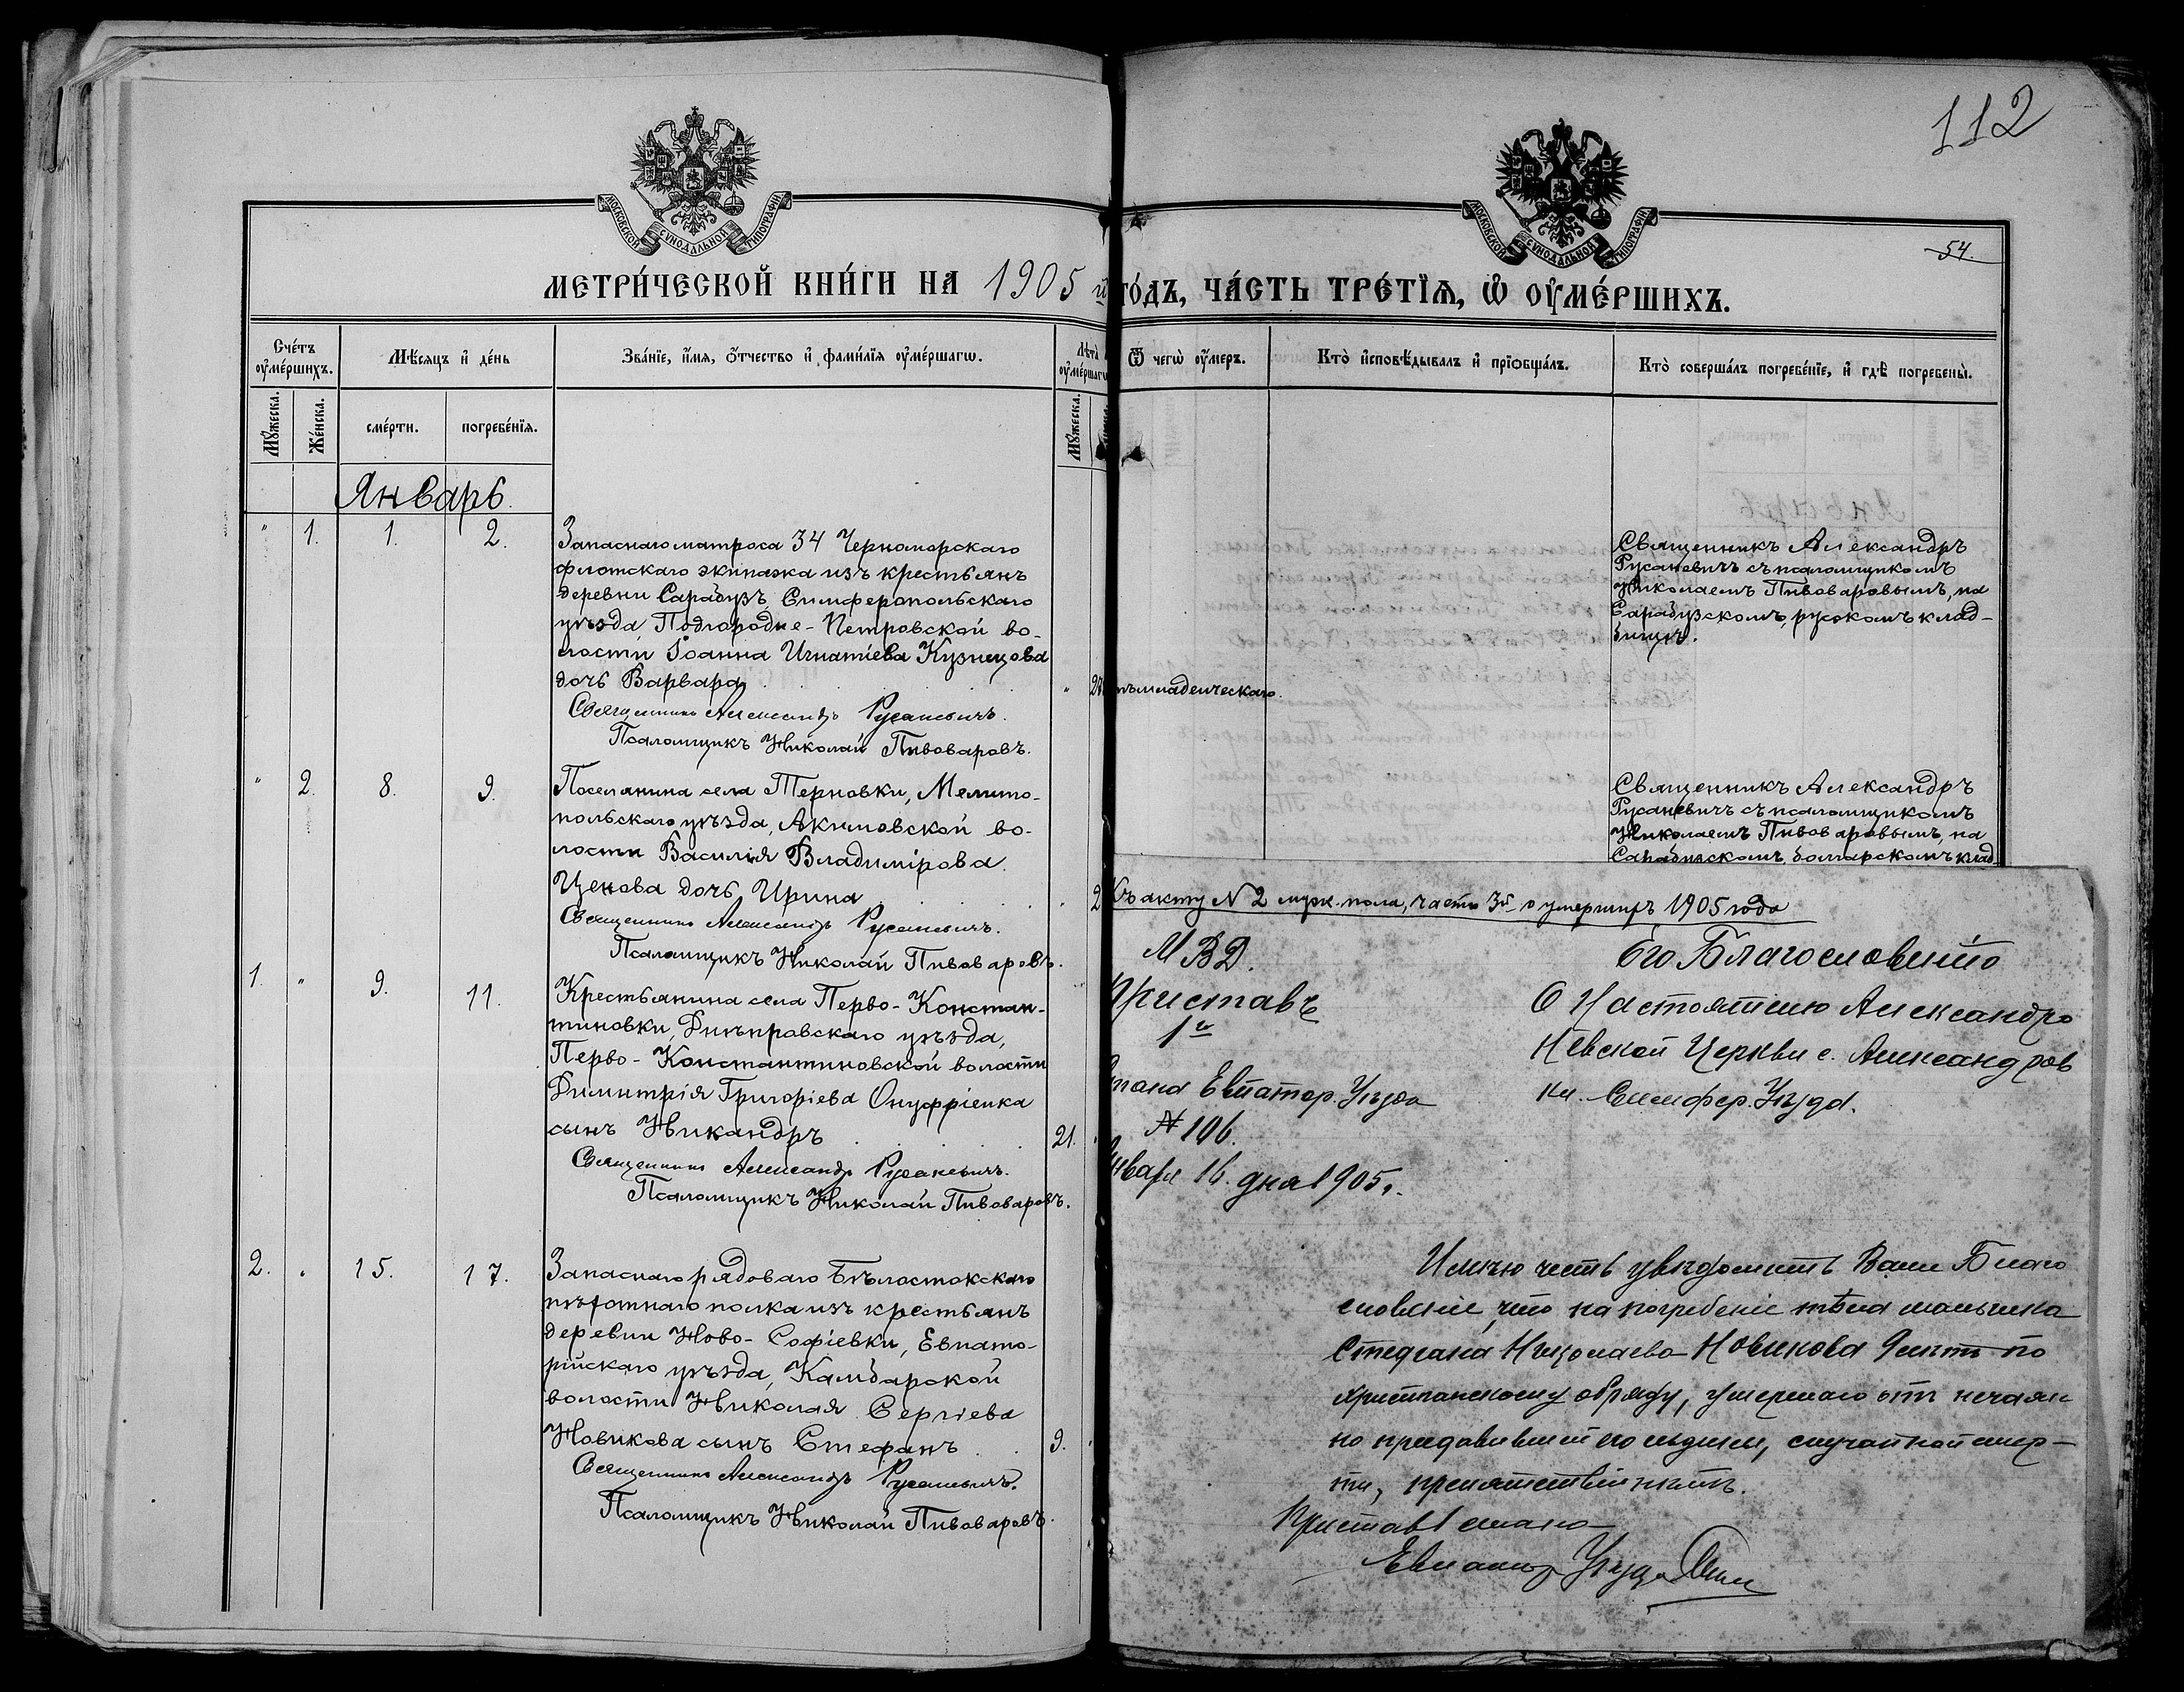 112
МОСКОВСКОЙ СѴНОДАЛЬНОЙ ТИПОГРАФІИ
МОСКОВСКОЙ СѴНОДАЛЬНОЙ ТИПОГРАФІИ
54.
МЕТРИ́ЧЕСКОЙ КНИ́ГИ НА 1905 й
го́дъ, ча́сть тре́тїѧ, ѡ҆ ᲂу҆ме́ршихъ.
Сче́тъ ᲂу҆ме́ршихъ.
Мѣ́сяцъ и҆ де́нь
Зва́нїе, и҆́мя, ѻ҆́тчество и҆ фами́лїя ᲂу҆ме́ршагѡ.
Лѣта̀ ᲂу҆ме́ршагѡ
Ѿ чегѡ̀ ᲂу҆́меръ.
Кто̀ и҆сповѣ́дывалъ и҆ прїѡбща́лъ.
Кто̀ соверша́лъ погребе́нїе, и҆ гдѣ̀ погребены̀.
Мꙋ́жеска.
Же́нска.
сме́рти.
погребе́нїя.
Мꙋ́жеска.
Январь.
" 1. 1. 2.
Запаснаго матроса 34 Черноморскаго
флотскаго экипажа изъ крестьянъ
деревни Сарабузъ, Симферопольскаго
уѣзда, Подгородне-Петровской во-
лости Іоанна Игнатіева Кузнецова
дочь Варвара
Священникъ Александръ Русаневичъ.
Псаломщикъ Николай Пивоваровъ.
младенческаго.
Священникъ Александръ
Русаневичъ съ псаломщикомъ
Николаемъ Пивоваровымъ, на
Сарабузскомъ, русскомъ клад-
бищѣ.
" 2. 8. 9.
Поселянина села Терновки, Мелито-
польскаго уѣзда, Акимовской во-
лости Василія Владимірова
Ценова дочь Ирина
Священникъ Александръ Русаневичъ.
Псаломщикъ Николай Пивоваровъ.
Священникъ Александръ
Русаневичъ съ псаломщикомъ
Николаемъ Пивоваровымъ, на
Сарабузскомъ болгарскомъ клад-
1. " 9. 11.
Крестьянина села Перво-Констан-
тиновки, Днѣпровскаго уѣзда,
Перво-Константиновской волости
Димитрія Григоріева Онуфріенка
сынъ Никандръ 21.
Священникъ Александръ Русаневичъ.
Псаломщикъ Николай Пивоваровъ.
2. " 15. 17.
Запаснаго рядоваго Бѣлостокскаго
пѣхотнаго полка изъ крестьянъ
деревни Ново-Софіевки, Евпато-
рійскаго уѣзда, Камбарской
волости Николая Сергіева
Новикова сынъ Стефанъ 9.
Священникъ Александръ Русаневичъ.
Псаломщикъ Николай Пивоваровъ.
Къ акту № 2 муж. пола, часть 3й о умершихъ 1905 года
МВД.
Приставъ
1го
стана Евпатор. Уѣзда
№ 106.
Января 16 дня 1905 г.
Его Благословенію
О Настоятелю Александро
Невской Церкви с. Александров
ки. Симфер. Уѣзда.
Имѣю честь увѣдомить Ваше Благо
словеніе, что на погребеніе тѣла мальчика
Стефана Николаева Новикова 9 лѣтъ по
христіанскому обряду, умершаго отъ нечаян
но придавившей его льдины, случайной смер-
ти, препятствій нѣтъ.
Приставъ 1 стана
Евпатор Уѣзда